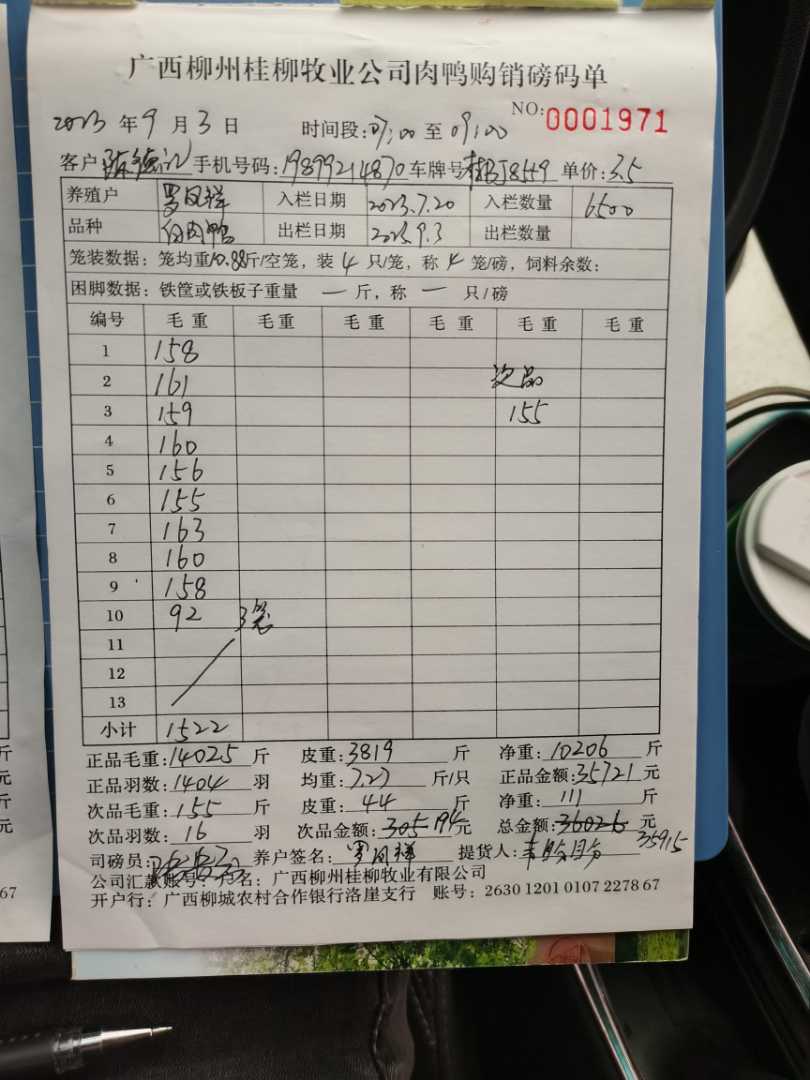 广西柳州桂柳牧业公司肉鸭购销磅码单
NO: 0001971
2023 年 9 月 3 日 时间段: 07:00 至 09:00
客户 手机号码: 19899214870 车牌号 桂BJ85H9 单价: 3.5
养殖户 罗凤祥 入栏日期 2023.7.20 入栏数量 6500
品种 白肉鸭 出栏日期 2023.9.3 出栏数量
笼装数据: 笼均重10.88斤/空笼, 装 4 只/笼, 称 4 笼/磅, 饲料余数:
困脚数据: 铁筐或铁板子重量 一 斤, 称 一 只/磅
编号 毛重 毛重 毛重 毛重 毛重 毛重
1 158
2 161 次品
3 159 155
4 160
5 156
6 155
7 163
8 160
9 158
10 92 3笼
11
12
13
小计 1522
正品毛重: 14025 斤 皮重: 3819 斤 净重: 10206 斤
正品羽数: 1404 羽 均重: 7.27 斤/只 正品金额: 35721 元
次品毛重: 155 斤 皮重: 44 斤 净重: 111 斤
次品羽数: 16 羽 次品金额: 305 194 元 总金额: 36026 元
35915
司磅员: 养户签名: 罗凤祥 提货人:
公司汇款账号: 户名: 广西柳州桂柳牧业有限公司
开户行: 广西柳城农村合作银行洛崖支行 账号: 2630 1201 0107 2278 67
斤
元
斤
元
67